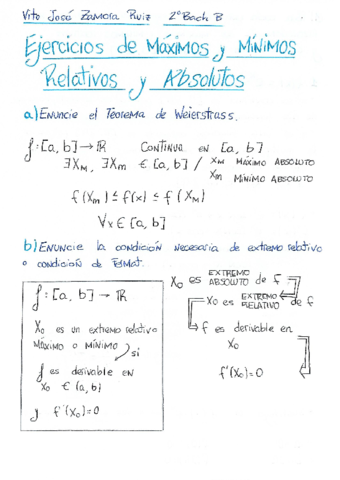 Vito José Zamora Ruiz 2º Bach B
Ejercicios de Máximos y Mínimos
Relativos y Absolutos
a) Enuncie el Teorema de Weierstrass.
f: [a, b] → ℝ continua en [a, b]
∃X_M, ∃X_m ∈ [a, b] / X_M máximo absoluto
X_m mínimo absoluto
f(X_m) ≤ f(x) ≤ f(X_M)
∀x ∈ [a, b]
b) Enuncie la condición necesaria de extremo relativo
o condición de Fermat.
f: [a, b] → ℝ
X₀ es un extremo relativo
máximo o mínimo
si
f es derivable en
x₀ ∈ (a, b)
y f'(x₀)=0
X₀ es extremo absoluto de f
X₀ es extremo relativo de f
f es derivable en
X₀
f'(X₀)=0